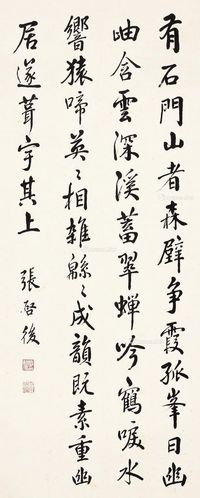 有石門山者森壁争霞孤峯日幽
岫含雲深溪蓄翠蟬吟鶴唳水
響猿啼英〻相雜緜〻成韻既素重幽
居遂葺宇其上
張啓後